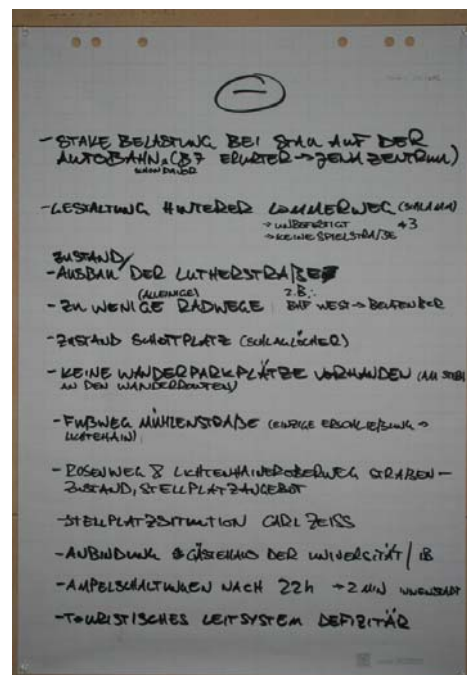 - STAKE BELASTUNG BEI STAU AUF DER
AUTOBAHN (B7 ERFURTER → JENA ZENTRUM)
SCHON DAVOR
- GESTALTUNG HINTERER LOMMERWEG (SCHLAMM)
→ UNBEFESTIGT
→ KEINE SPIELSTRAßE
ZUSTAND/
- AUSBAU DER LUTHERSTRAßE
(ALLEINIGE) Z.B.:
- ZU WENIGE RADWEGE BHF WEST →
- ZUSTAND SCHOTTPLATZ (SCHLAGLÖCHER)
- KEINE WANDERPARKPLÄTZE VORHANDEN (AM
AN DEN WANDERROUTEN)
- FUßWEG MÜHLENSTRAßE (EINZIGE ERSCHLIEßUNG →
LICHTEHAIN)
- ROSENWEG & LICHTENHAINEROBERWEG STRAßEN-
ZUSTAND, STELLPLATZANGEBOT
- STELLPLATZSITUATION CARL ZEISS
- ANBINDUNG GÄSTEHAUS DER UNIVERSITÄT / IB
- AMPELSCHALTUNGEN NACH 22h → 2 MIN INNENSTADT
- TOURISTISCHES LEITSYSTEM DEFIZITÄR